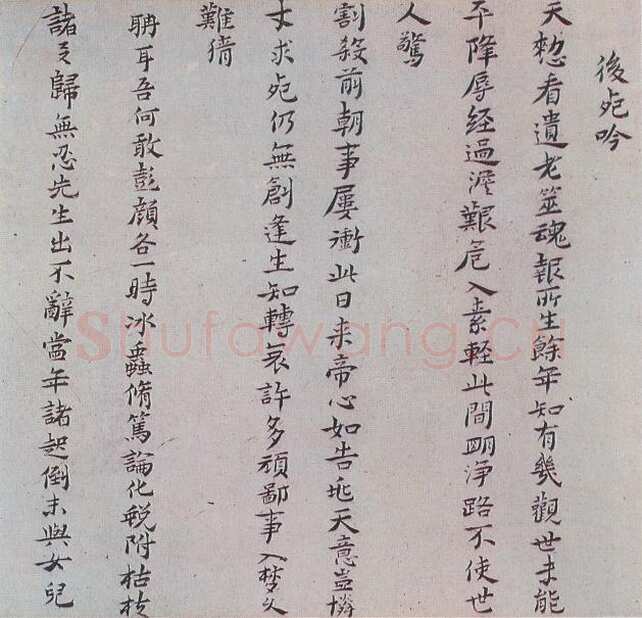 後死吟
天愁看遺老筮魂報所生餘年知有幾觀世未能
平降辱经過澀艱危入素輕此間明淨路不使世
人驚
割殺前朝事屢衝此日来帝心如告天意豈憐
才求死仍無創逢生知轉哀許多頑鄙事入梦久
難猜
聃耳吾何敢彭顔各一時冰蟲脩篤論化蛻附枯枝
諸歸無忍先生出不辭當年諸起倒未與女兒
Shufawang.cn